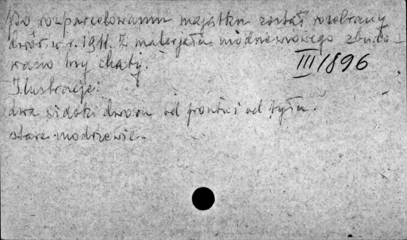 Po rozparcelowaniu majątku został rozebrany
dwór w r. 1911. Z materjału modrzewowego zbudo-
wano trzy chaty.
III/1896
Ilustracje:
dwa widoki dworu od frontu i od tyłu.
stare modrzewie.